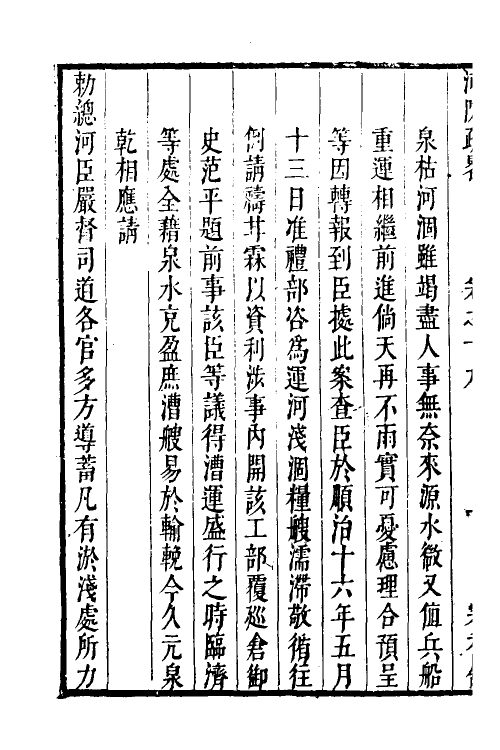 泉枯河涸雖竭盡人事無奈來源水微又值兵船
重運相繼前進倘天再不雨實可憂慮理合預呈
等因轉報到臣據此案查臣於順治十六年五月
十三日准禮部咨為運河淺涸糧艘濡滯敬循往
例請禱甘霖以資利涉事內開該工部覆巡倉御
史范平題前事該臣等議得漕運盛行之時臨濟
等處全藉泉水充盈庶漕艘易於輸輓今久亢泉
乾相應請
勅總河臣嚴督司道各官多方導蓄凡有淤淺處所力